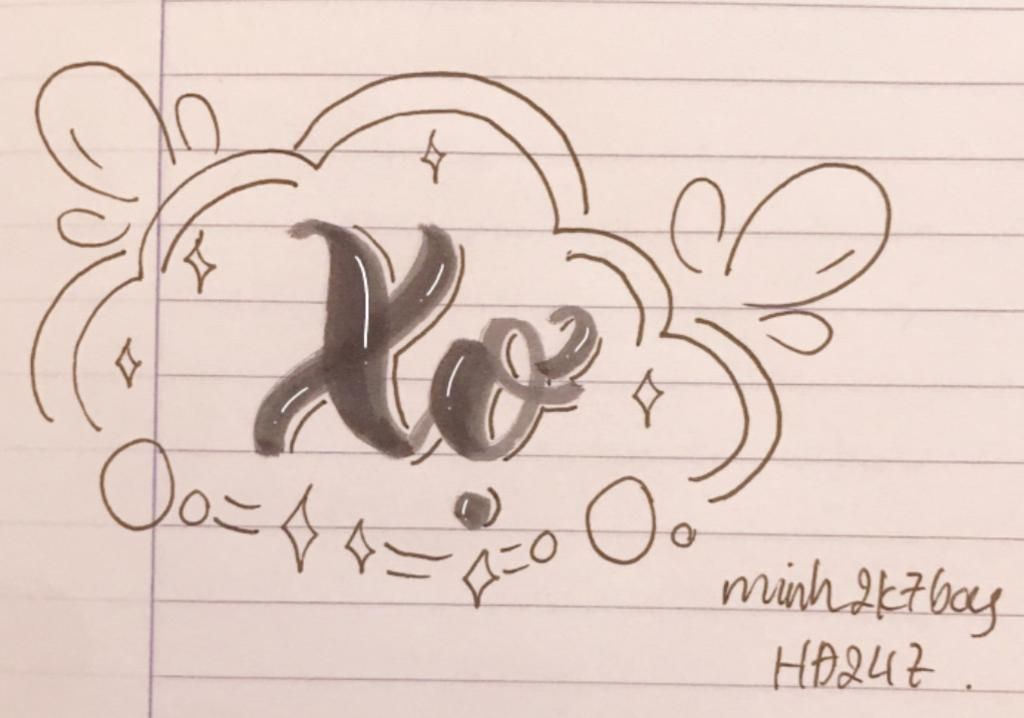 Xọ
minh2k7boy
HĐ247.